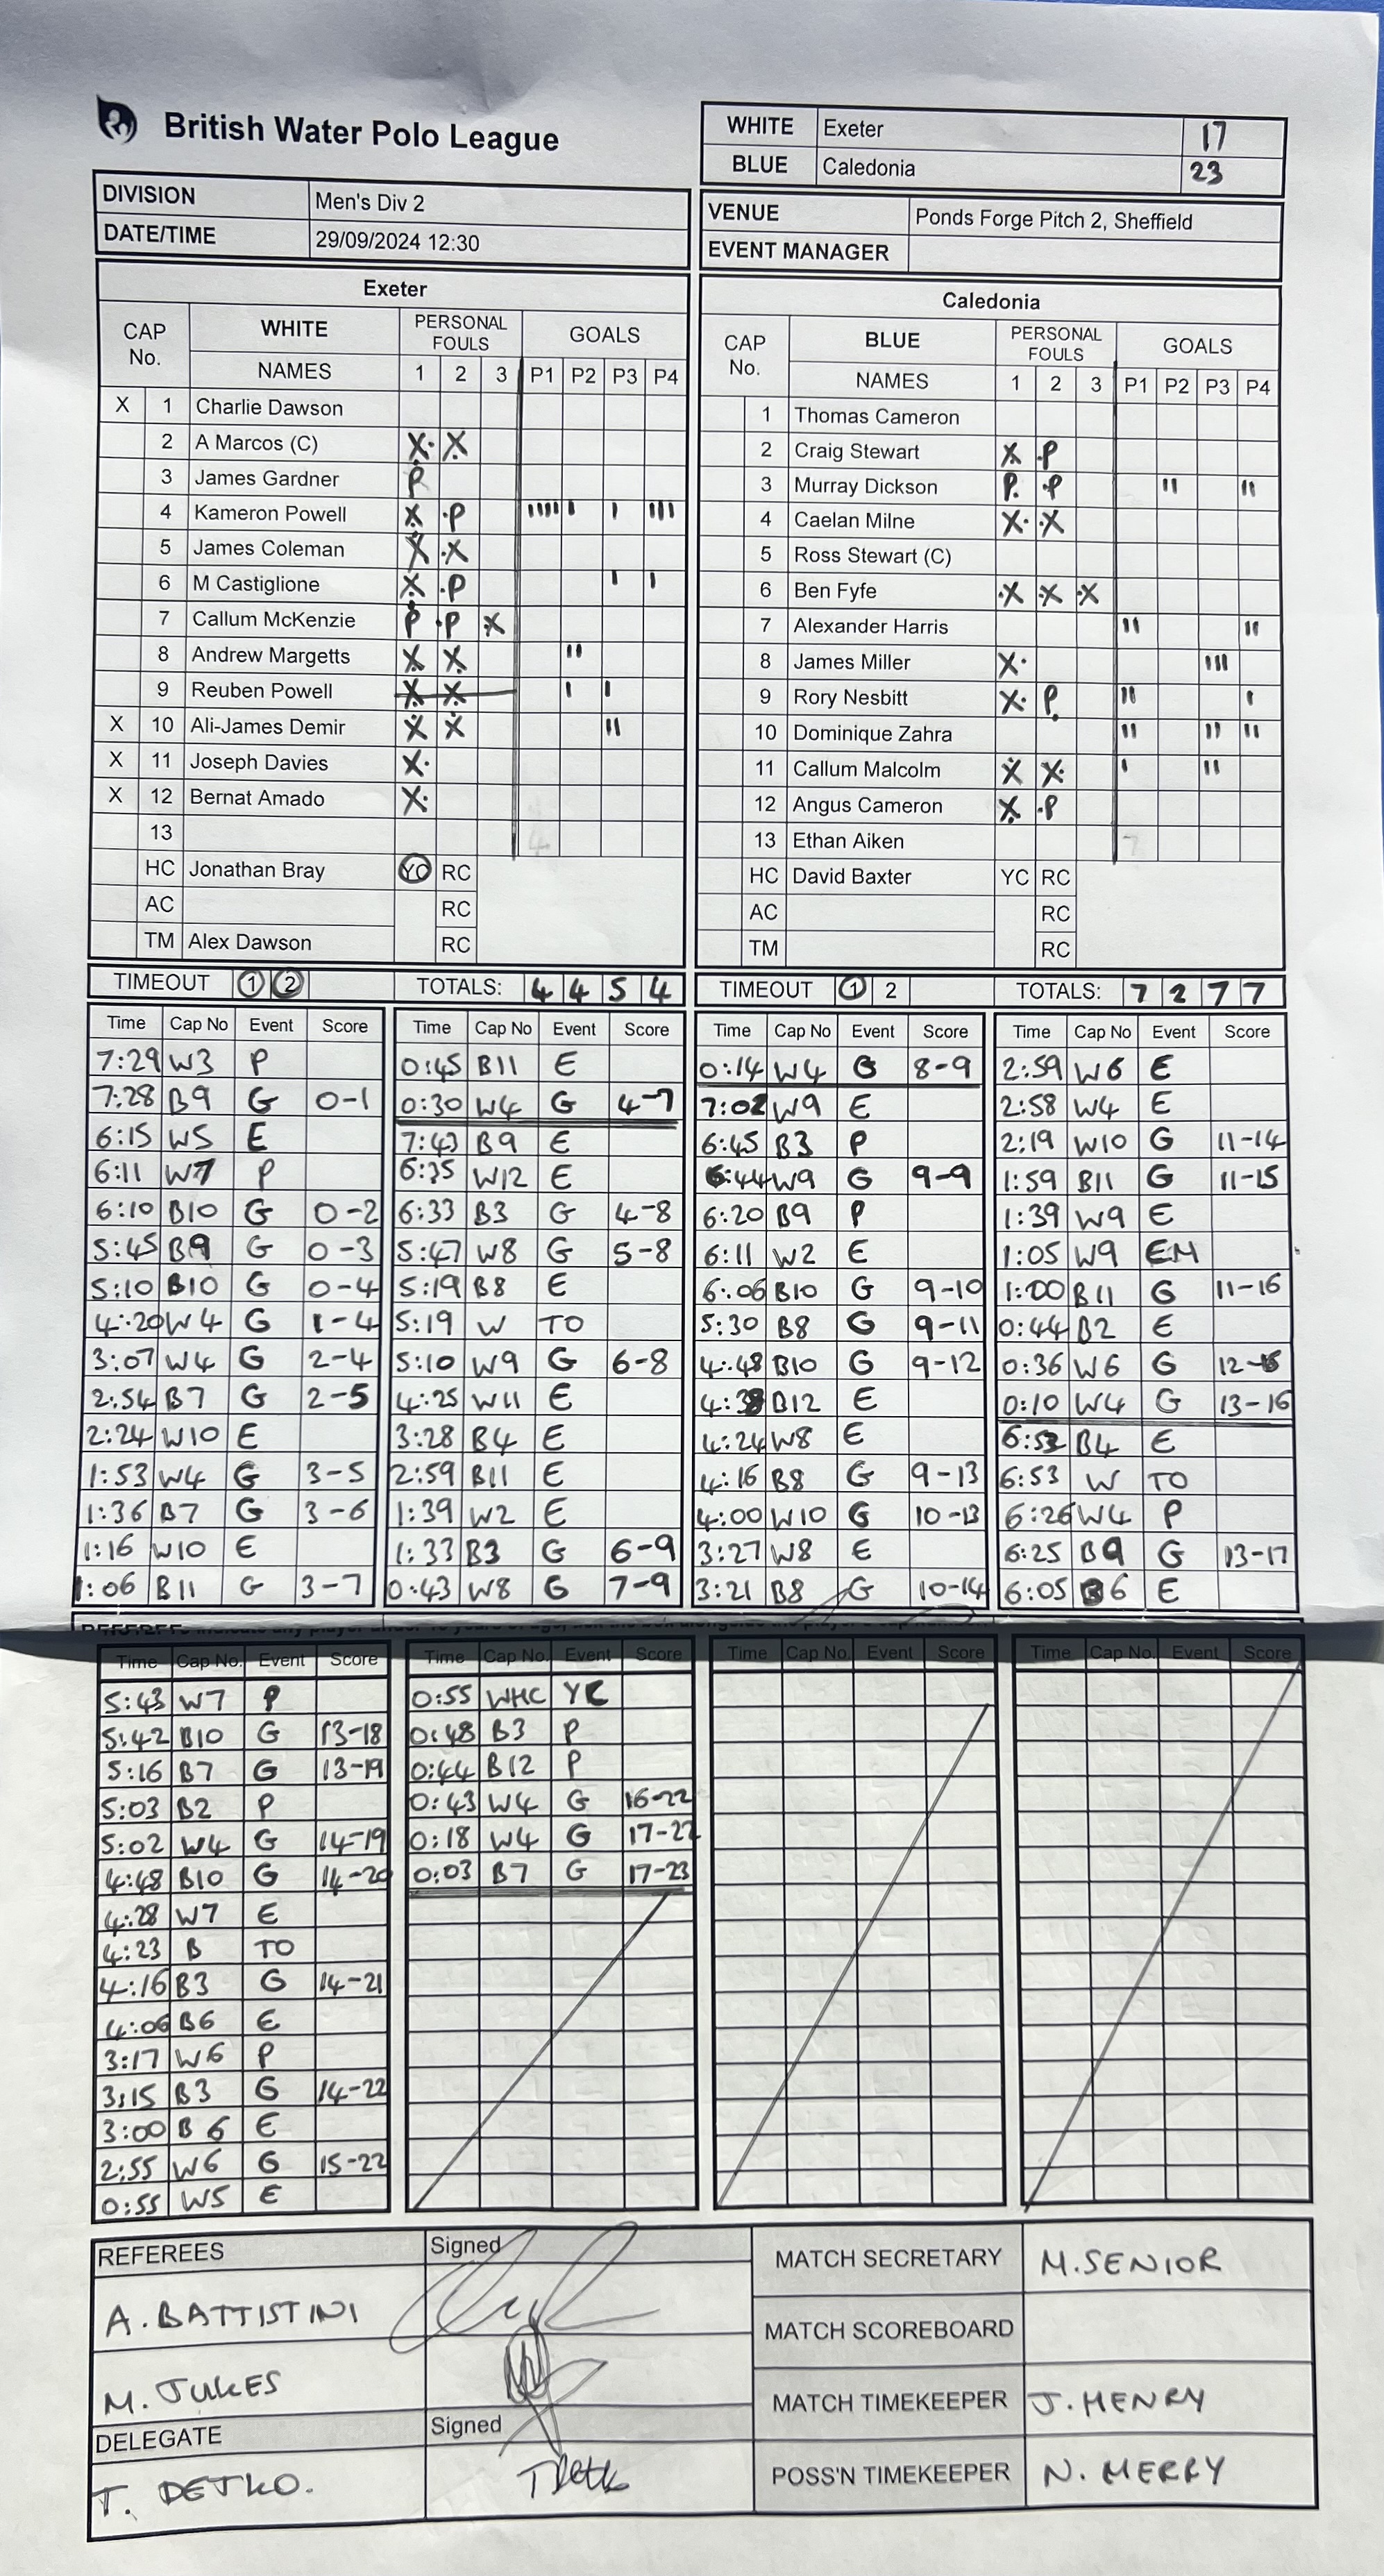 British Water Polo League
WHITE Exeter 17
BLUE Caledonia 23
DIVISION Men's Div 2
DATE/TIME 29/09/2024 12:30
VENUE Ponds Forge Pitch 2, Sheffield
EVENT MANAGER
Exeter
CAP No. WHITE PERSONAL FOULS GOALS
NAMES 1 2 3 P1 P2 P3 P4
X 1 Charlie Dawson
2 A Marcos (C) X X
3 James Gardner P
4 Kameron Powell X P IIII I I III
5 James Coleman X X
6 M Castiglione X P I I
7 Callum McKenzie P P X
8 Andrew Margetts X X II
9 Reuben Powell X X I I
X 10 Ali-James Demir X X II
X 11 Joseph Davies X
X 12 Bernat Amado X
13 4
HC Jonathan Bray YC RC
AC RC
TM Alex Dawson RC
TIMEOUT 1 2 TOTALS: 4 4 5 4
Caledonia
CAP No. BLUE PERSONAL FOULS GOALS
NAMES 1 2 3 P1 P2 P3 P4
1 Thomas Cameron
2 Craig Stewart X P
3 Murray Dickson P P II II
4 Caelan Milne X X
5 Ross Stewart (C)
6 Ben Fyfe X X X
7 Alexander Harris II II
8 James Miller X III
9 Rory Nesbitt X P II I
10 Dominique Zahra II II II
11 Callum Malcolm X X I II
12 Angus Cameron X P
13 Ethan Aiken 7
HC David Baxter YC RC
AC RC
TM RC
TIMEOUT 1 2 TOTALS: 7 2 7 7
Time Cap No Event Score
7:29 W3 P
7:28 B9 G 0-1
6:15 W5 E
6:11 W7 P
6:10 B10 G 0-2
5:45 B9 G 0-3
5:10 B10 G 0-4
4:20 W4 G 1-4
3:07 W4 G 2-4
2:54 B7 G 2-5
2:24 W10 E
1:53 W4 G 3-5
1:36 B7 G 3-6
1:16 W10 E
1:06 B11 G 3-7
Time Cap No Event Score
0:45 B11 E
0:30 W4 G 4-7
7:43 B9 E
6:35 W12 E
6:33 B3 G 4-8
5:47 W8 G 5-8
5:19 B8 E
5:19 W TO
5:10 W9 G 6-8
4:25 W11 E
3:28 B4 E
2:59 B11 E
1:39 W2 E
1:33 B3 G 6-9
0:43 W8 G 7-9
Time Cap No Event Score
0:14 W4 G 8-9
7:02 W9 E
6:45 B3 P
6:44 W9 G 9-9
6:20 B9 P
6:11 W2 E
6:06 B10 G 9-10
5:30 B8 G 9-11
4:48 B10 G 9-12
4:38 B12 E
4:24 W8 E
4:16 B8 G 9-13
4:00 W10 G 10-13
3:27 W8 E
3:21 B8 G 10-14
Time Cap No Event Score
2:59 W6 E
2:58 W4 E
2:19 W10 G 11-14
1:59 B11 G 11-15
1:39 W9 E
1:05 W9 EM
1:00 B11 G 11-16
0:44 B2 E
0:36 W6 G 12-16
0:10 W4 G 13-16
6:53 B4 E
6:53 W TO
6:26 W4 P
6:25 B9 G 13-17
6:05 B6 E
Time Cap No. Event Score
5:43 W7 P
5:42 B10 G 13-18
5:16 B7 G 13-19
5:03 B2 P
5:02 W4 G 14-19
4:48 B10 G 14-20
4:28 W7 E
4:23 B TO
4:16 B3 G 14-21
4:06 B6 E
3:17 W6 P
3:15 B3 G 14-22
3:00 B6 E
2:55 W6 G 15-22
0:55 W5 E
Time Cap No. Event Score
0:55 WHC YC
0:48 B3 P
0:44 B12 P
0:43 W4 G 16-22
0:18 W4 G 17-22
0:03 B7 G 17-23
Time Cap No. Event Score
Time Cap No. Event Score
REFEREES Signed
A. BATTISTINI
M. JUKES
DELEGATE Signed
T. DETKO.
MATCH SECRETARY M. SENIOR
MATCH SCOREBOARD
MATCH TIMEKEEPER J. HENRY
POSS'N TIMEKEEPER N. MERRY